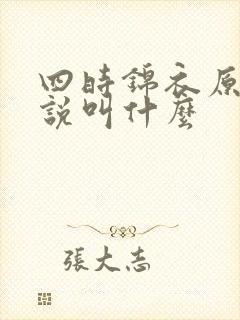 四時錦衣原
說叫什麼
張大志